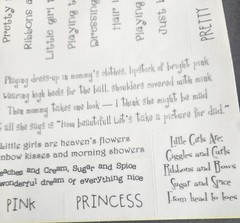 Pretty
Ribbons a
Little girl
Playing
Dressing
Half
Playing
Just
PRETTY
Playing dress-up in mommy's clothes, lipstick of bright pink
Wearing high heels for the ball, shoulders covered with mink
Then mommy takes one look — I think she might be mad
t all she says is "How beautiful! Let's take a picture for dad."
little girls are heaven's flowers
nbow kisses and morning showers
eaches and Cream, Sugar and Spice
wonderful dream or everything nice
PINK
PRINCESS
Little Girls Are:
Giggles and Curls
Ribbons and Bows
Sugar and Spice
From head to toes